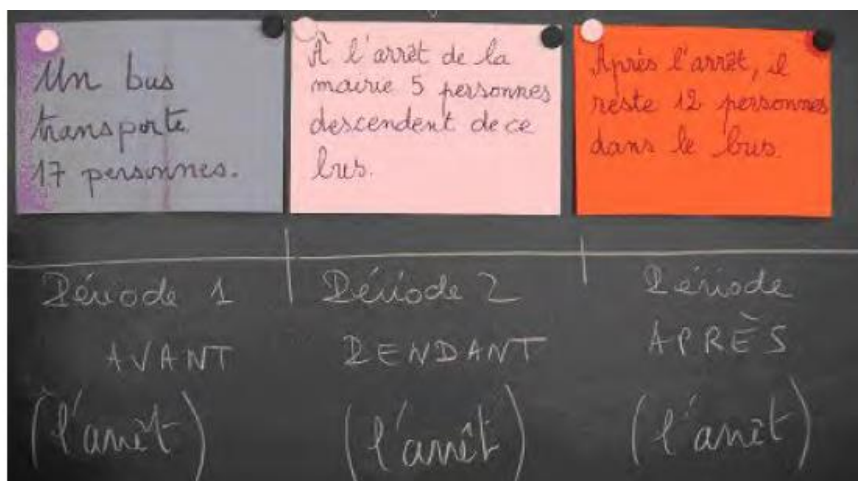 Un bus
transporte
17 personnes.
À l'arrêt de la
mairie 5 personnes
descendent de ce
bus.
Après l'arrêt, il
reste 12 personnes
dans le bus.
Période 1
AVANT
(l'arrêt)
Période 2
PENDANT
(l'arrêt)
Période
APRÈS
(l'arrêt)